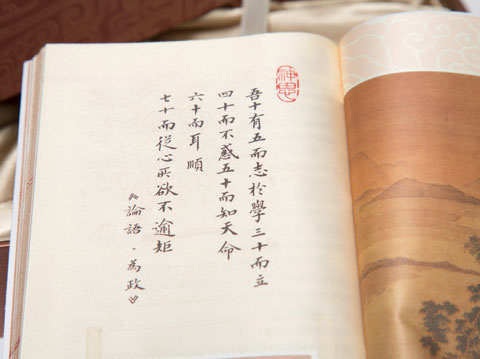 吾十有五而志於學三十而立
四十而不惑五十而知天命
六十而耳順
七十而從心所欲不逾矩
《論語·為政》